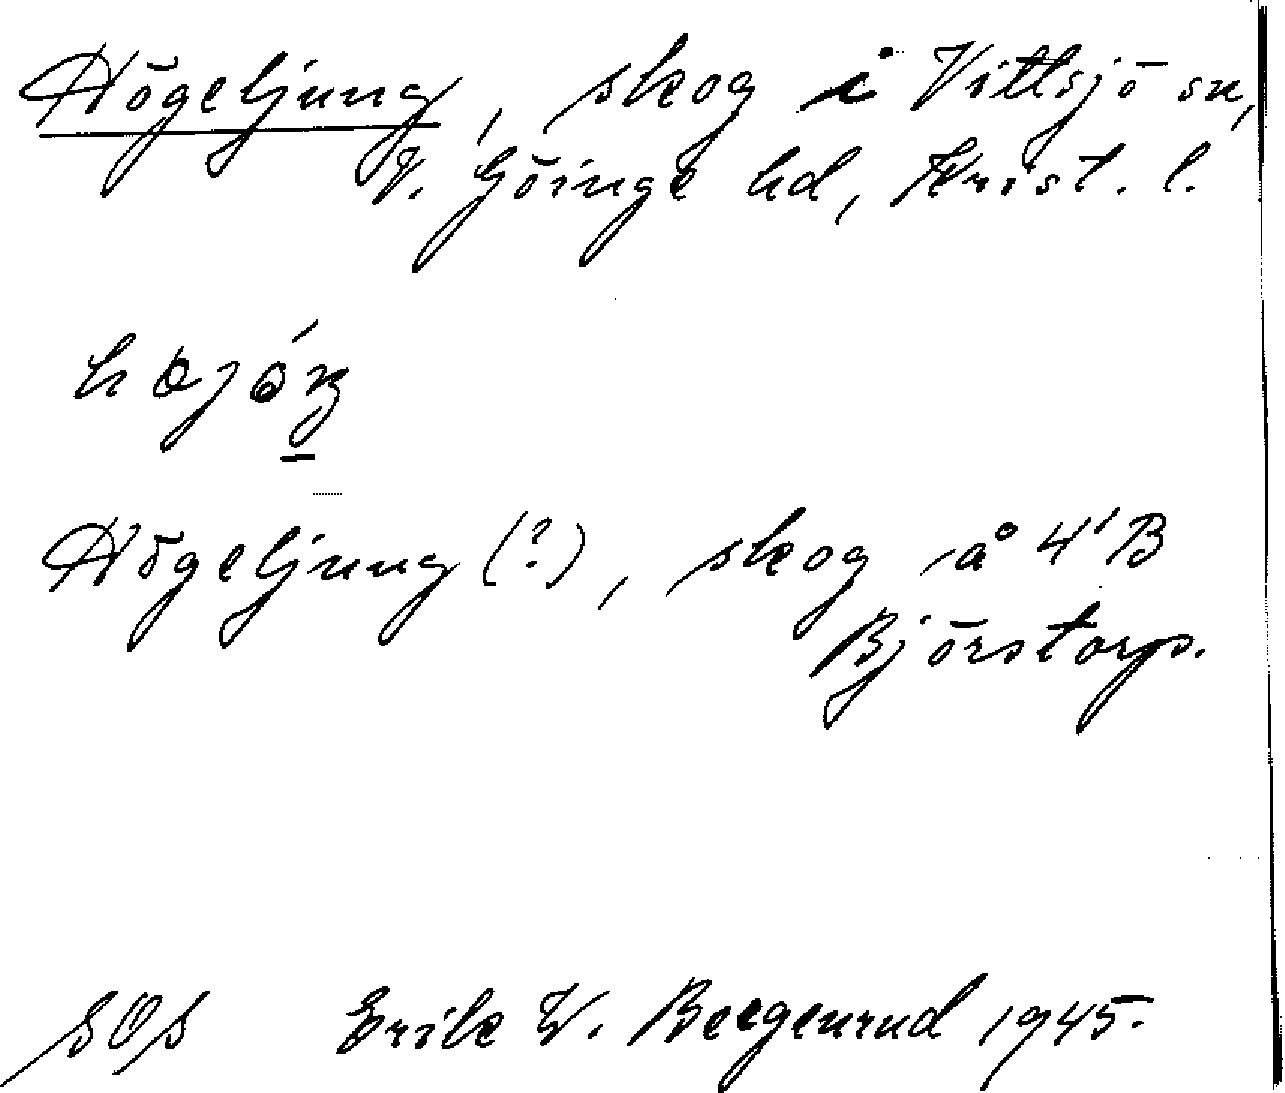 Högeljung, skog i Vittsjö sn,
V. Göinge hd, Krist. l.
Högeljung (?), skog å 4'B
Björstorp.
SOS Erik W. Beegenrud 1945.